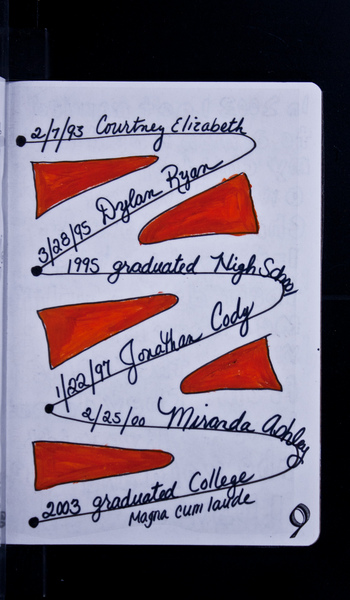 2/7/93 Courtney Elizabeth
3/28/95 Dylan Ryan
1995 graduated High School
1/22/97 Jonathan Cody
2/25/00 Miranda Ashley
2003 graduated College
Magna cum laude
9